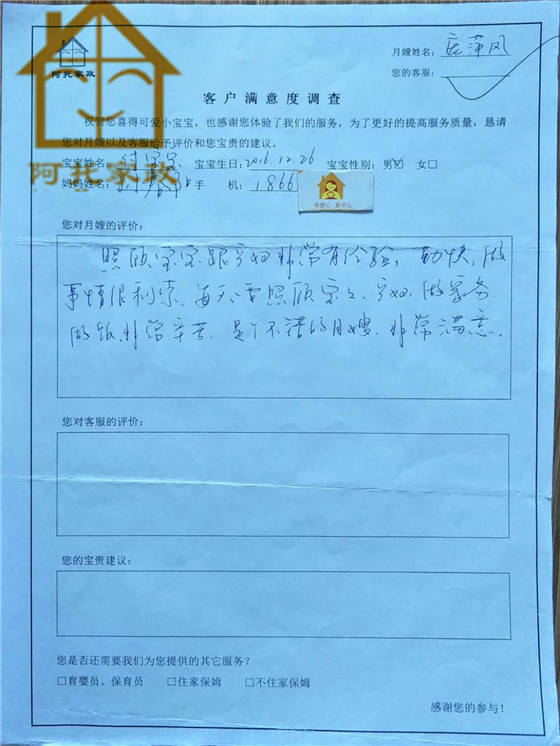 阿托家政
月嫂姓名：庞萍凤
您的客服：
客户满意度调查
祝贺您喜得可爱小宝宝，也感谢您体验了我们的服务，为了更好的提高服务质量，恳请
您对月嫂以及客服给予评价和您宝贵的建议。
宝宝姓名： 宝宝生日：2016.12.26 宝宝性别：男☑ 女□
阿托家政
妈妈姓名： 手 机：1866
有爱心 就尽心
您对月嫂的评价：
照顾宝宝跟产妇非常有经验，勤快，做
事情很利索，每天要照顾宝宝、产妇、做家务、
做饭，非常辛苦，是个不错的月嫂，非常满意。
您对客服的评价：
您的宝贵建议：
您是否还需要我们为您提供的其它服务？
□育婴员、保育员 □住家保姆 □不住家保姆
感谢您的参与！